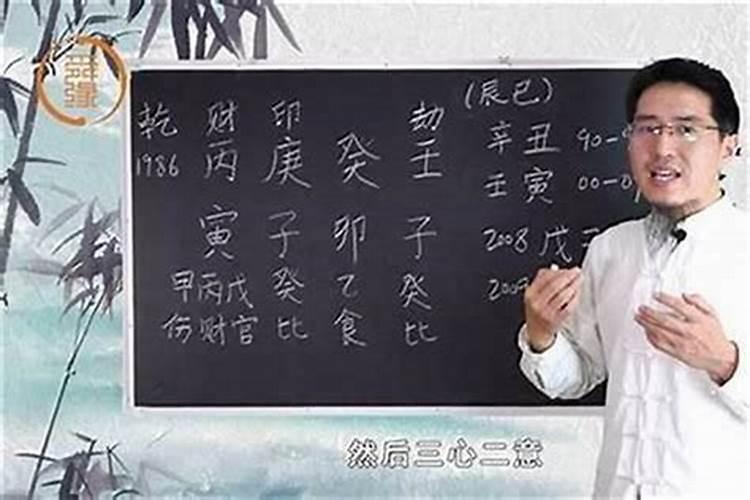 乾 财 印 劫 (辰巳)
1986 丙 庚 癸 壬 辛丑 90-
壬寅 00-0
寅 子 卯 子 2008 戊子
甲丙戊 癸 乙 癸 200
伤财官 比 食 比
然后三心二意